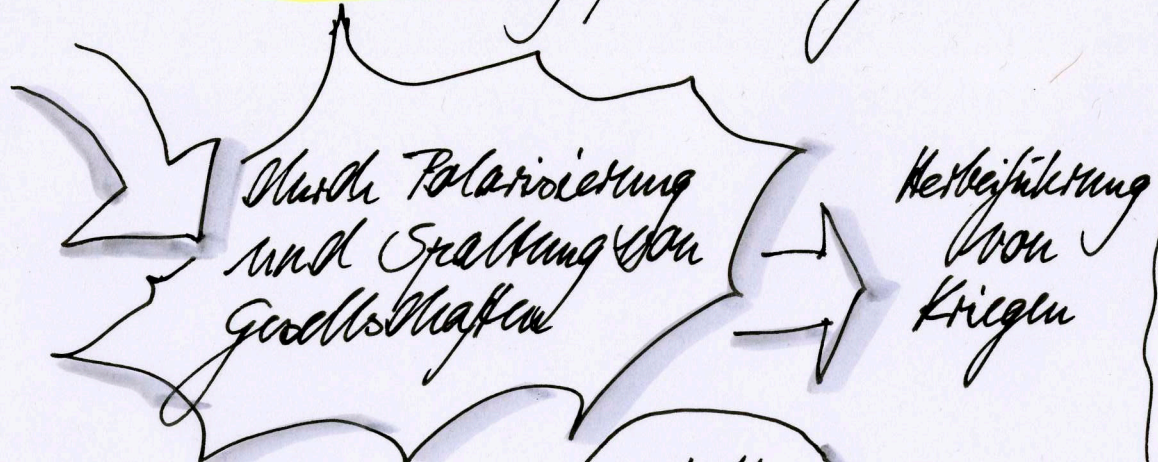 durch Polarisierung
und Spaltung von
Gesellschaften
Herbeiführung
von
Kriegen